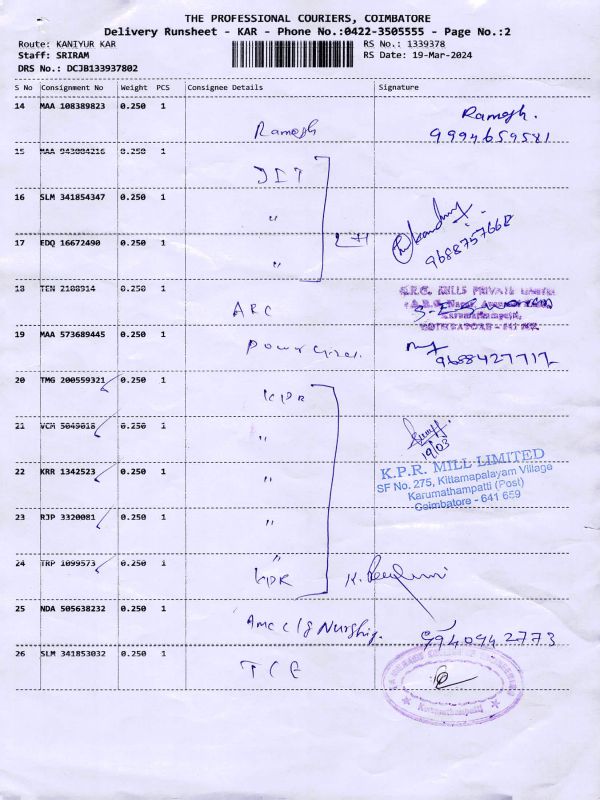 THE PROFESSIONAL COURIERS, COIMBATORE
Delivery Runsheet - KAR - Phone No.:0422-3505555 - Page No.:2
Route: KANIYUR KAR RS No.: 1339378
Staff: SRIRAM RS Date: 19-Mar-2024
DRS No.: DCJB133937802
S No Consignment No Weight PCS Consignee Details Signature
14 MAA 108389823 0.250 1 Ramesh Ramesh.
9994659581
15 MAA 943004216 0.250 1 JIT
16 SLM 341854347 0.250 1 "
17 EDQ 16672490 0.250 1 " 9688757668
18 TEN 2108914 0.250 1 ARC
K.R.G. MILLS PRIVATE LIMITED
Karumathampatti,
19 MAA 573689445 0.250 1 9688427717
20 TMG 200559321 0.250 1 KPR
21 VCM 5049018 0.250 1 "
19/03
22 KRR 1342523 0.250 1 "
K.P.R. MILL LIMITED
SF No. 275, Kittamapalayam Village
Karumathampatti (Post)
Coimbatore - 641 659
23 RJP 3320081 0.250 1 "
24 TRP 1099573 0.250 1 "
KPR K.
25 NDA 505638232 0.250 1 Nursing. 9940942773
26 SLM 341853032 0.250 1 TCE
Karumathampatti